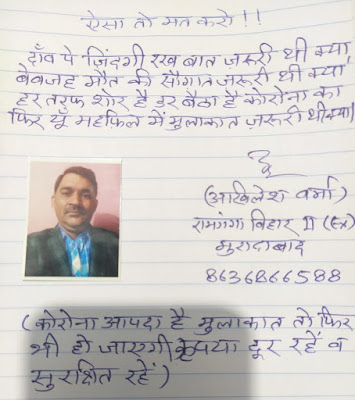 ऐसा तो मत करो !!
दाँव पे ज़िंदगी रख बात ज़रूरी थी क्या,
बेवजह मौत की सौगात ज़रूरी थी क्या,
हर तरफ शोर है डर बैठा है कोरोना का
फिर यूँ महफिल में मुलाकात ज़रूरी थी क्या।
(अखिलेश वर्मा)
रामगंगा विहार II (Ex)
मुरादाबाद
8636866588
(कोरोना आपदा है मुलाकात तो फिर
भी हो जाएगी कृपया दूर रहें व
सुरक्षित रहें)